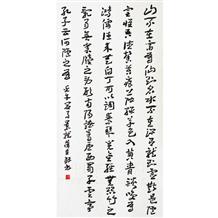 山不在高有仙則名水不在深有龍則靈斯是陋
室惟吾德馨苔痕上階綠草色入簾青談笑有
鴻儒往來無白丁可以調素琴閱金經無絲竹之
亂耳無案牘之勞形南陽諸葛廬西蜀子雲亭
孔子云何陋之有